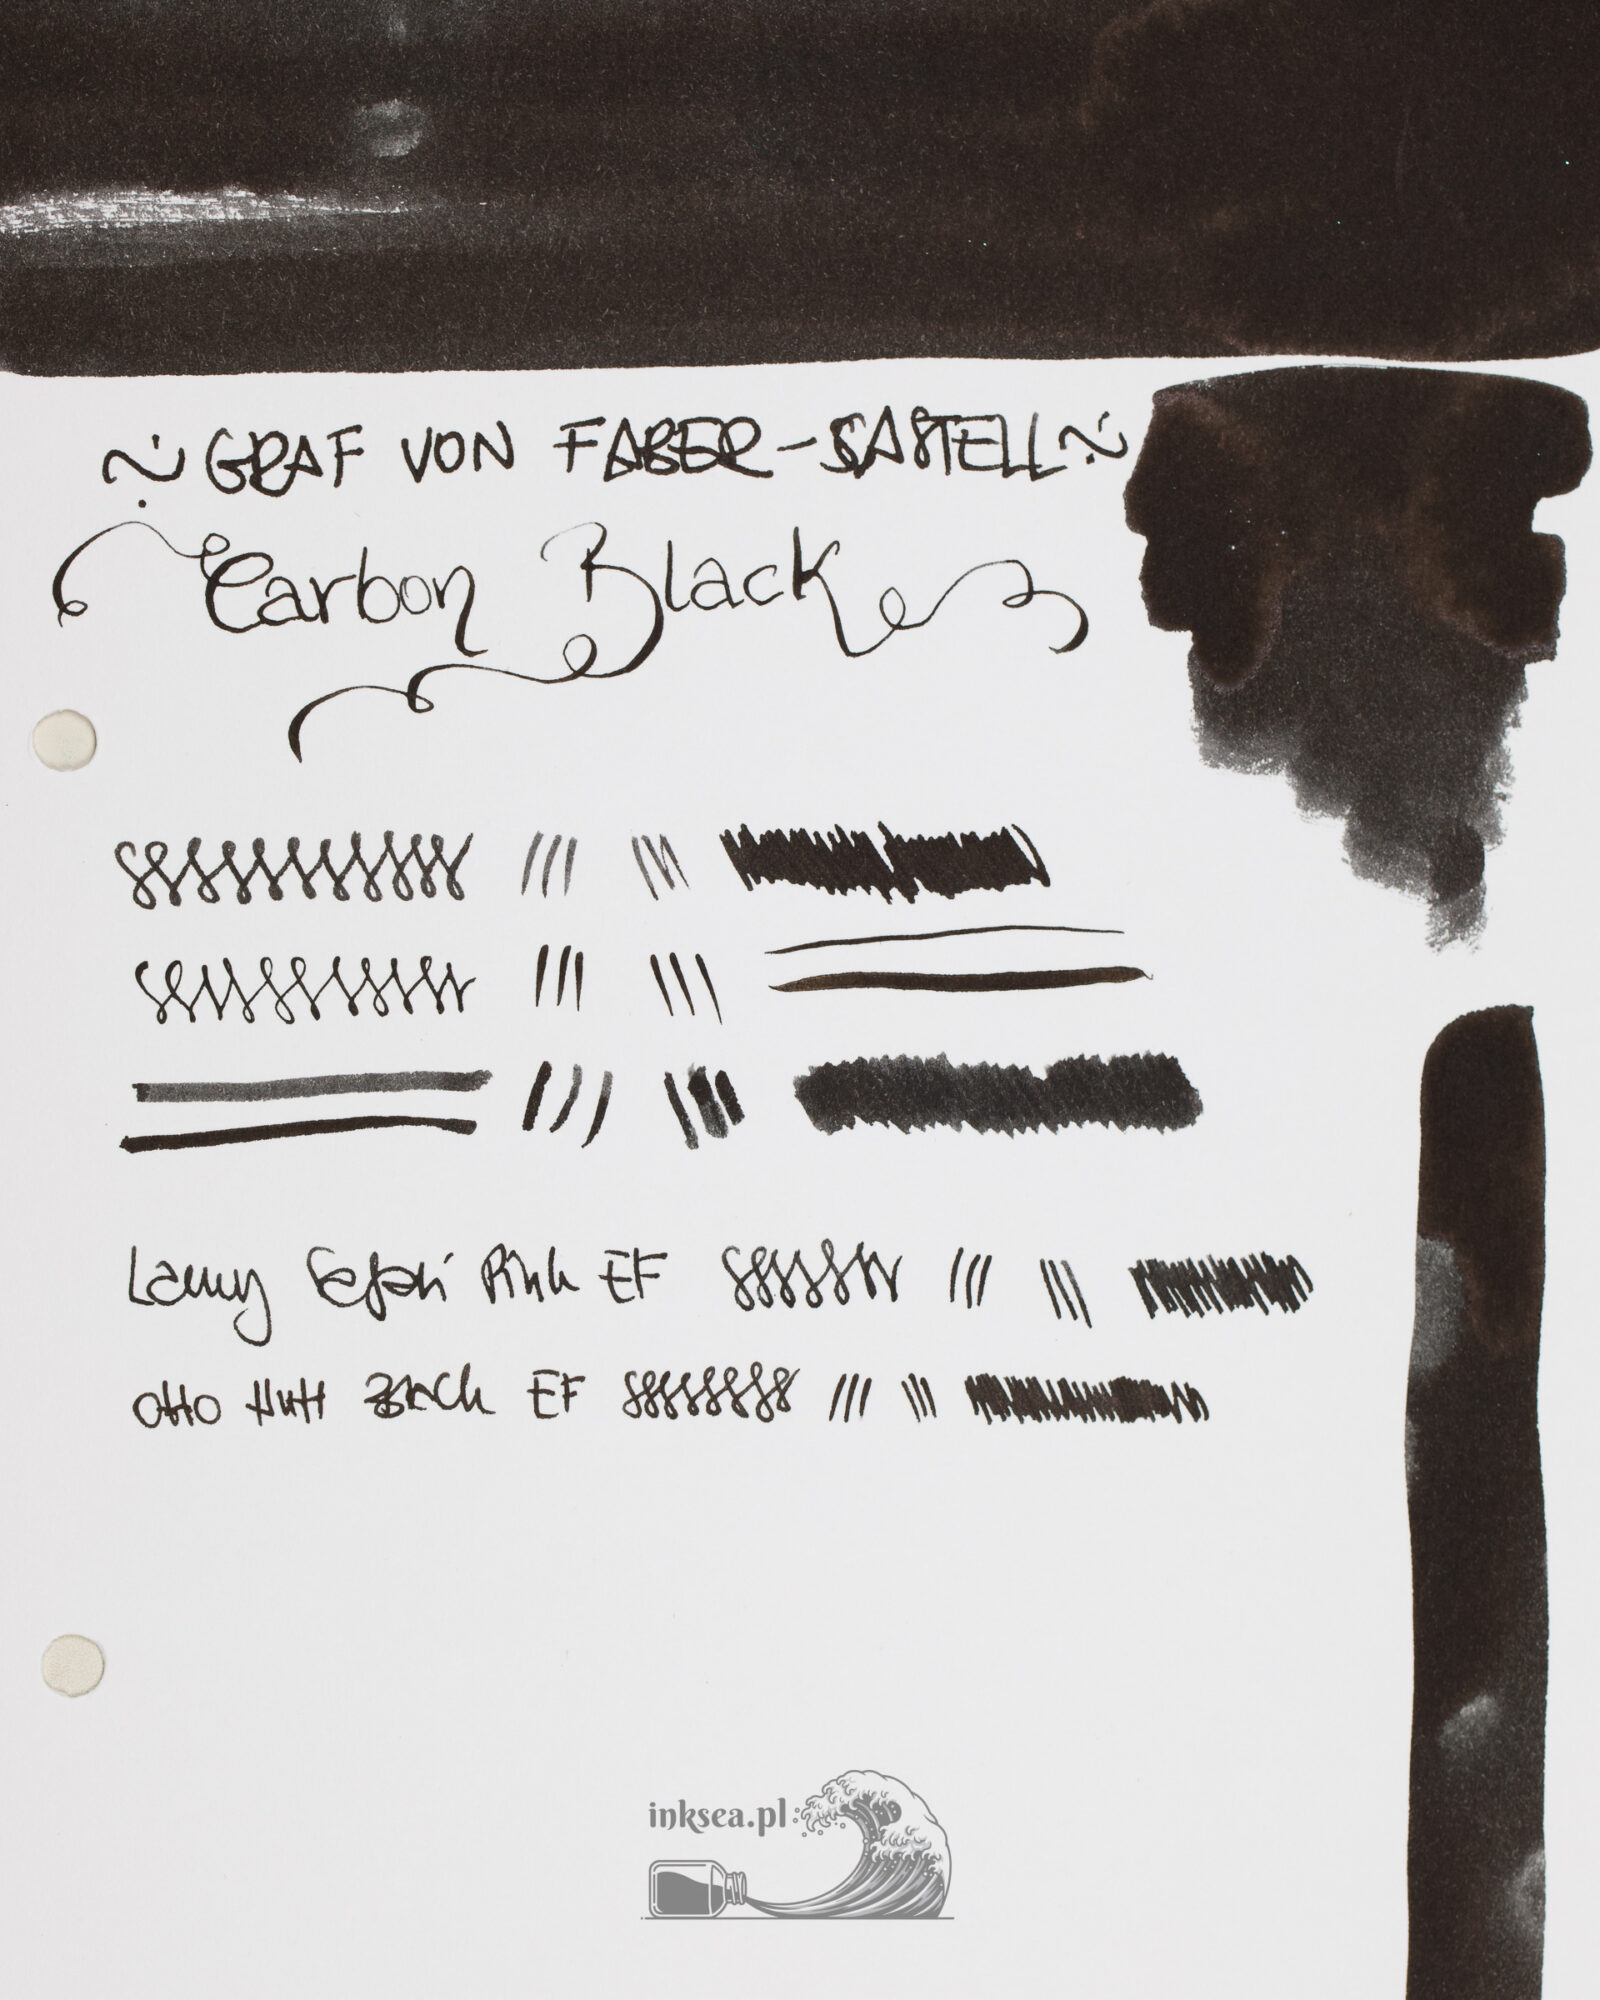 GRAF VON FABER-CASTELL
Carbon Black
Lamy Safari Pink EF
Otto Hutt Black EF
inksea.pl